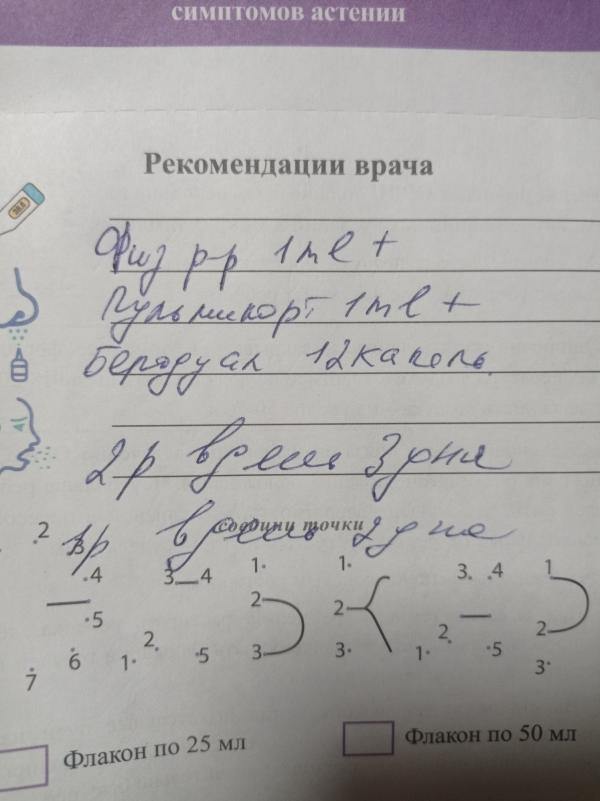 симптомов астении
Рекомендации врача
Физ р-р 1ml +
Пульмикорт 1ml +
Беродуал 12 капель
2р в день 3 дня
соедини точки
1р в день 2 дня
.2 3
.4 3 4 1. 1. 3. .4 1
.5 2 2 2
6 1. 2. .5 3 3. 1. 2. .5 3.
7
Флакон по 25 мл Флакон по 50 мл